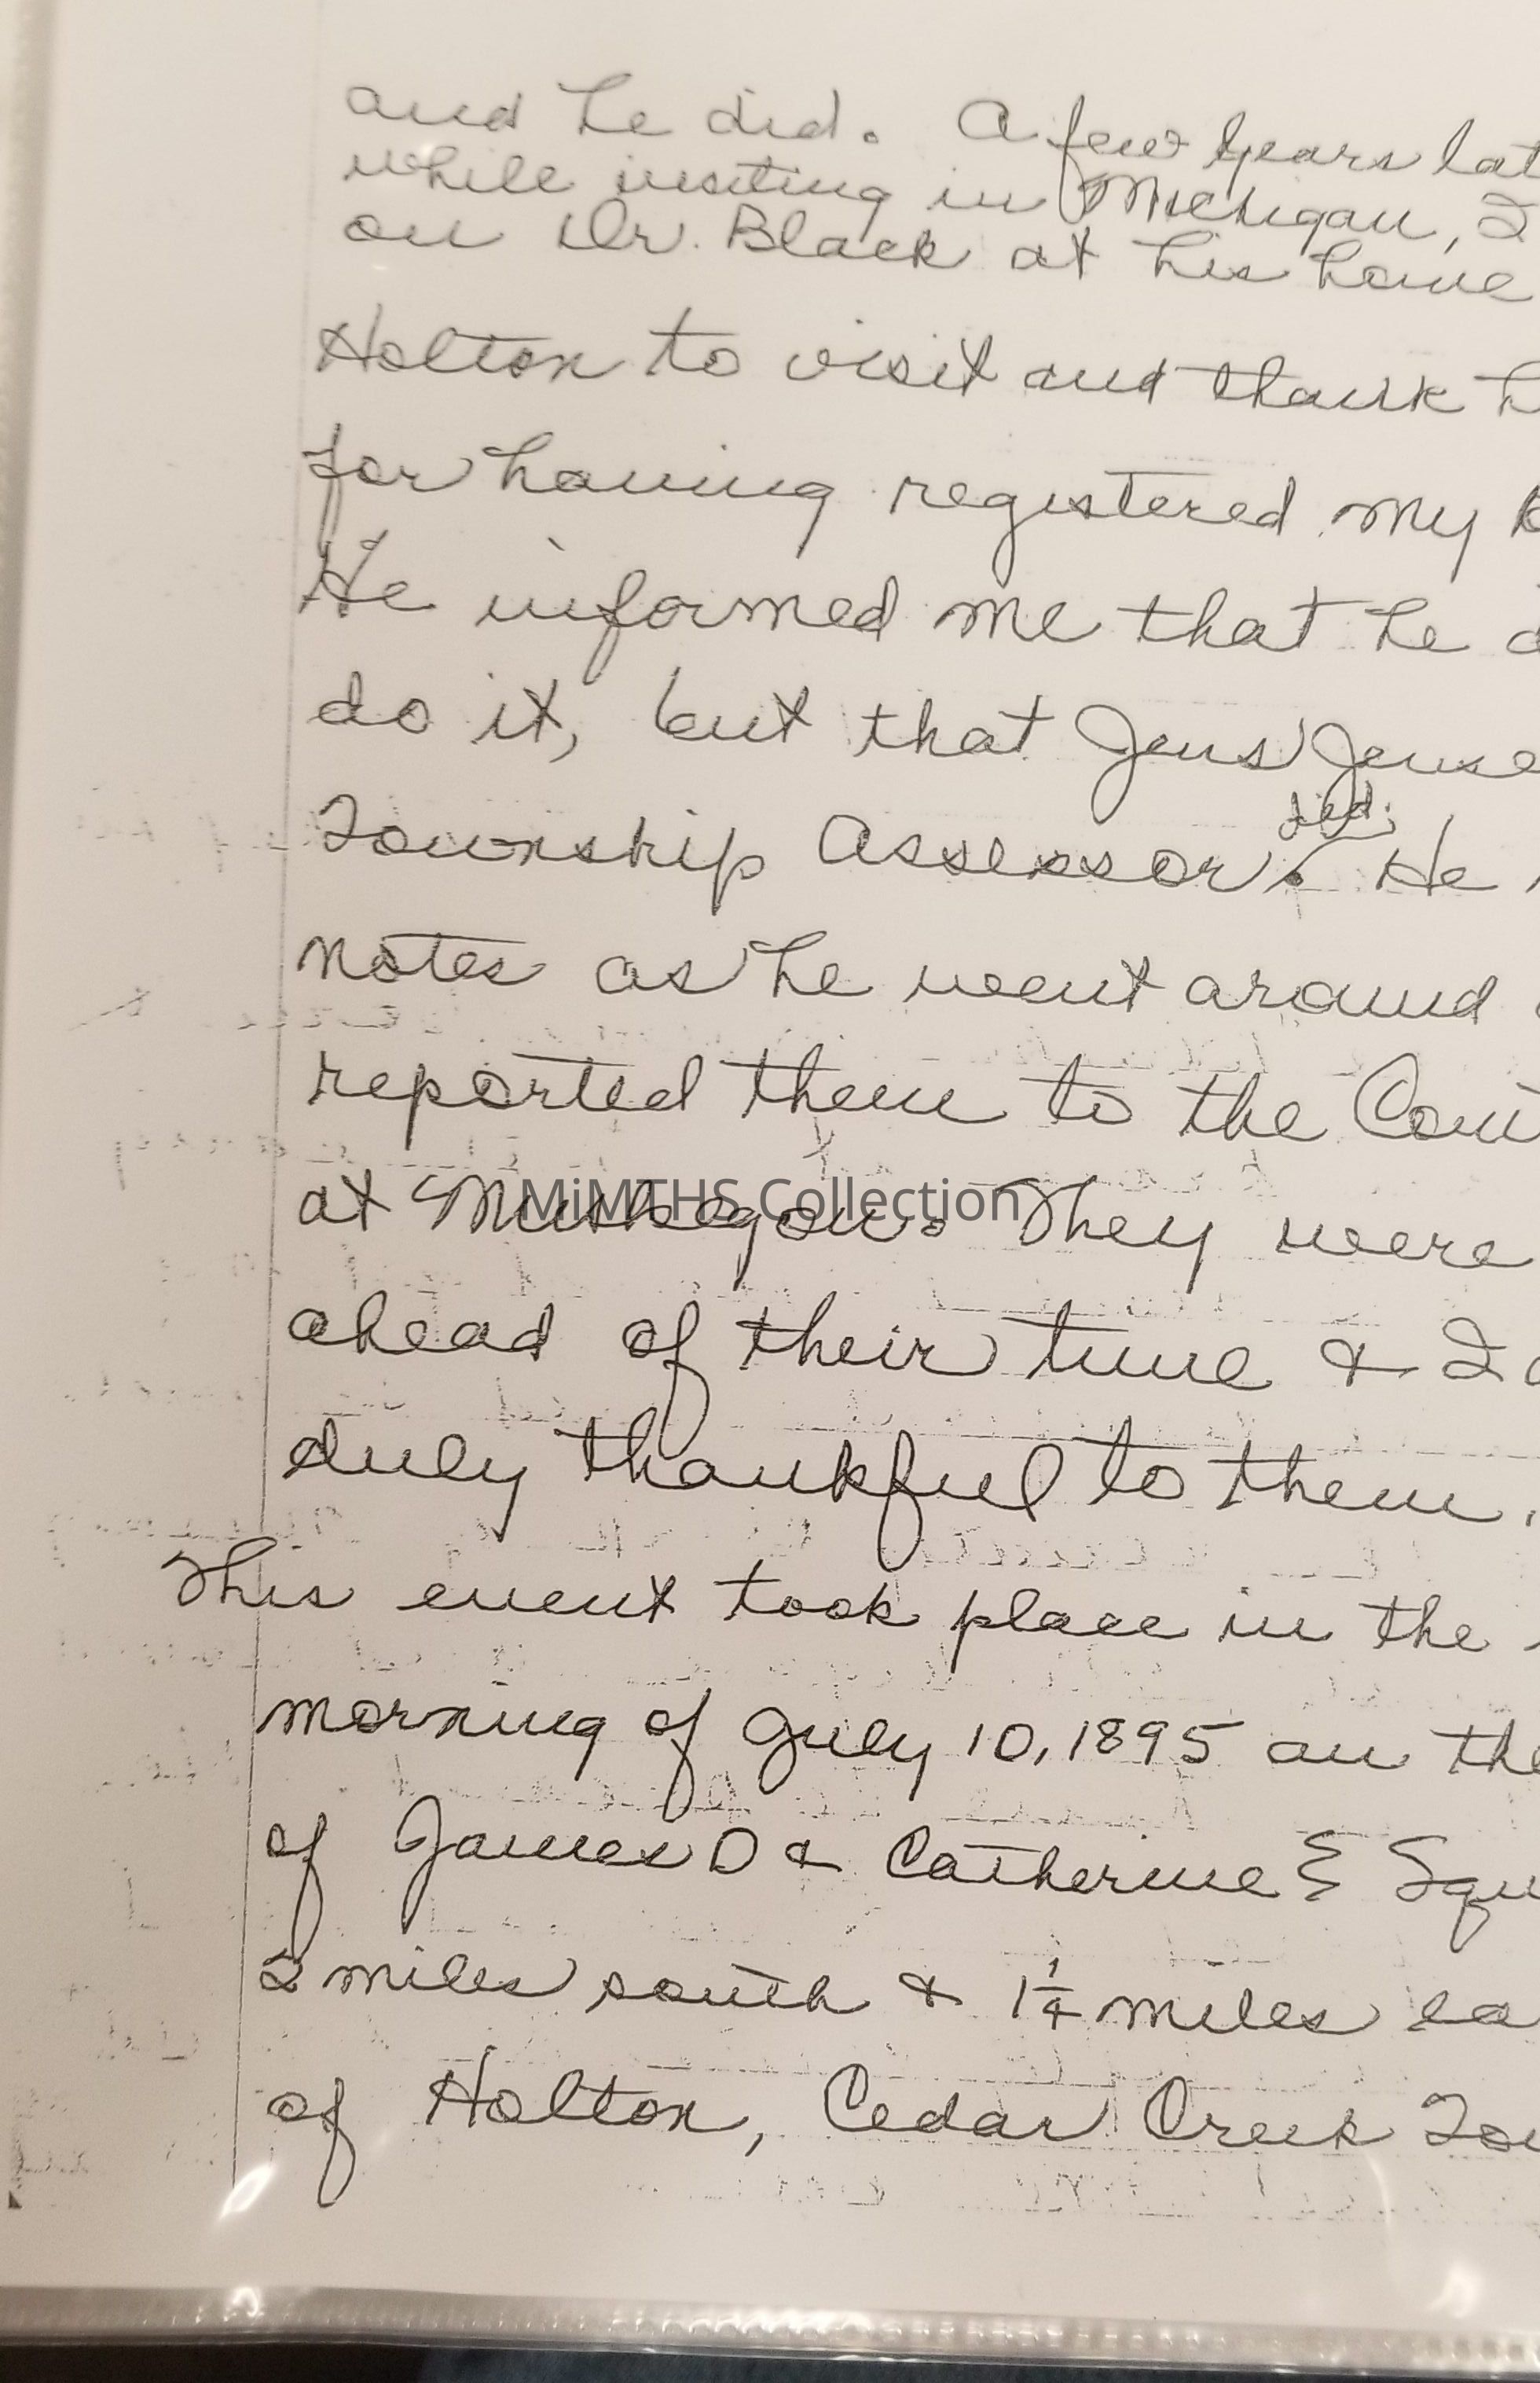 and he did. A few years lat
while visiting in Michigan, I
on Dr. Black at his home
Holton to visit and thank h
for having registered my b
He informed me that he d
do it, but that Jens Jense
did.
Township Assessor. He
notes as he went around
reported them to the Coun
at Muskegon. They were
MiMTHS Collection
ahead of their time & I a
duly thankful to them.
This event took place in the
morning of July 10, 1895 on the
of James D & Catherine E Squ
2 miles south & 1 1/4 miles ea
of Holton, Cedar Creek Tow